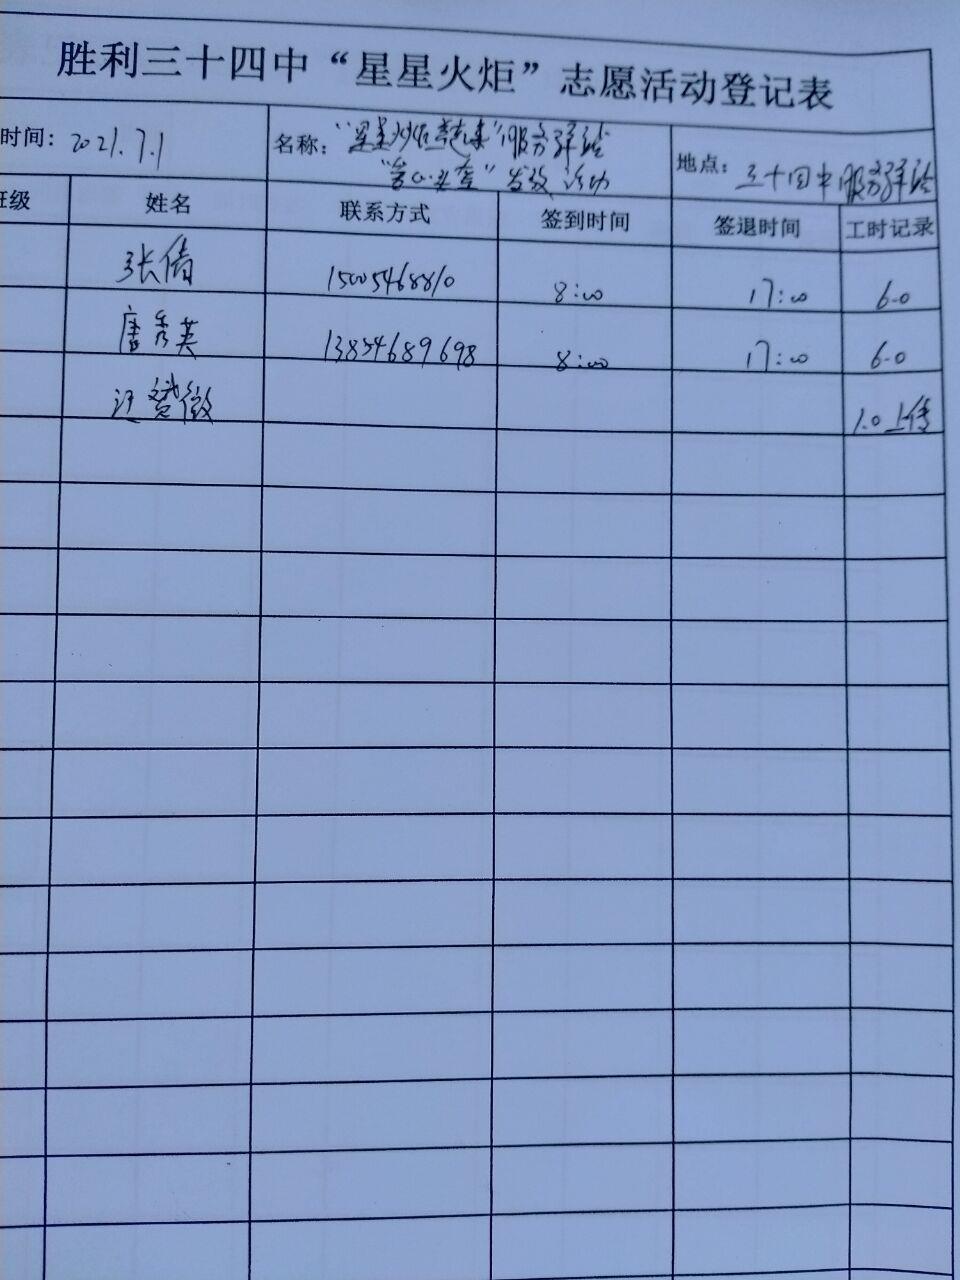 胜利三十四中“星星火炬”志愿活动登记表
时间：2021.7.1
名称：“星星火炬 ”服务群
“ ”发放活动
地点：三十四中服务群
班级 姓名 联系方式 签到时间 签退时间 工时记录
张倩 15005468810 8:00 17:00 6.0
唐秀英 13854689698 8:00 17:00 6.0
赟微 1.0上传